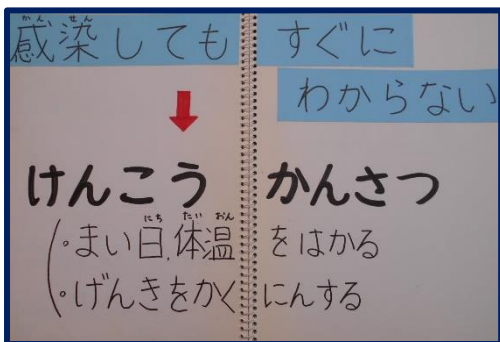 感染しても すぐに
わからない
けんこう かんさつ
・まい日、体温をはかる
・げんきをかくにんする